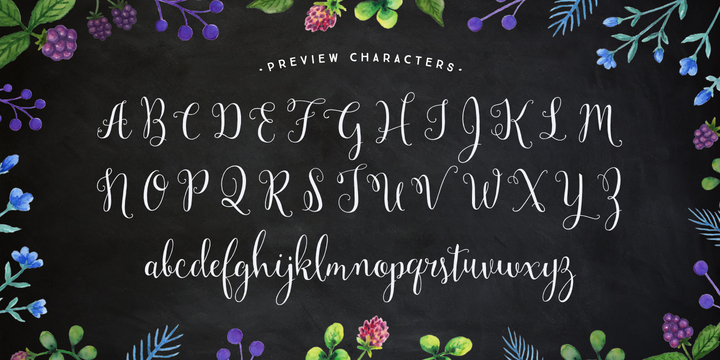 -PREVIEW CHARACTERS-
A B C D E F G H I J K L M
N O P Q R S T U V W X Y Z
abcdefghijklmnopqrstuvwxyz